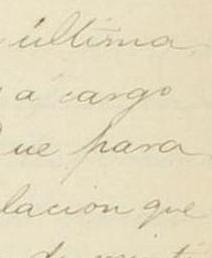 última
a cargo
ue para
lacion que